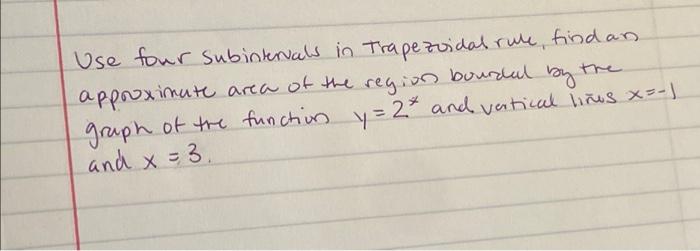 Use four subintervals in Trapezoidal rule, find an
approximate area of the region bounded by the
graph of the function y = 2ˣ and vertical lines x = -1
and x = 3.